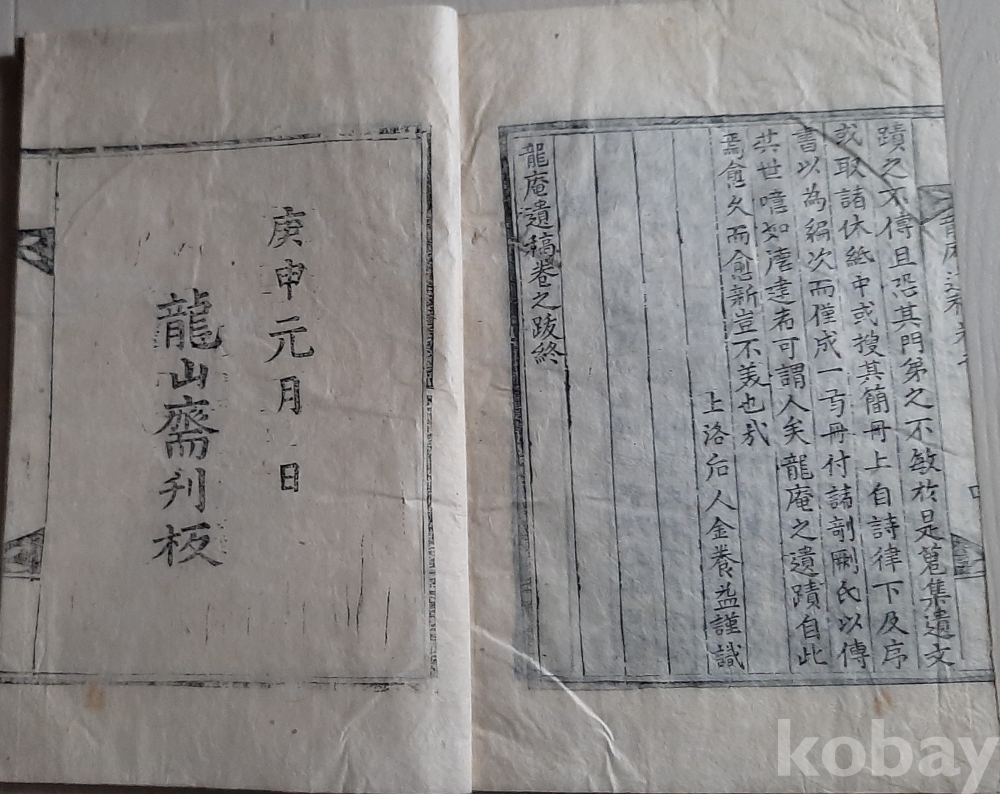 蹟之不傳且恐其門弟之不敏於是蒐集遺文
或取諸休紙中或搜其簡冊上自詩律下及序
書以為編次而僅成一㢧冊付諸剞劂氏以傳
其世噫如澹建者可謂人矣龍庵之遺蹟自此
焉愈久而愈新豈不美也哉
上洛后人金養益謹識
龍庵遺稿卷之跋終
庚申元月 日
龍山齋刋板
kobay